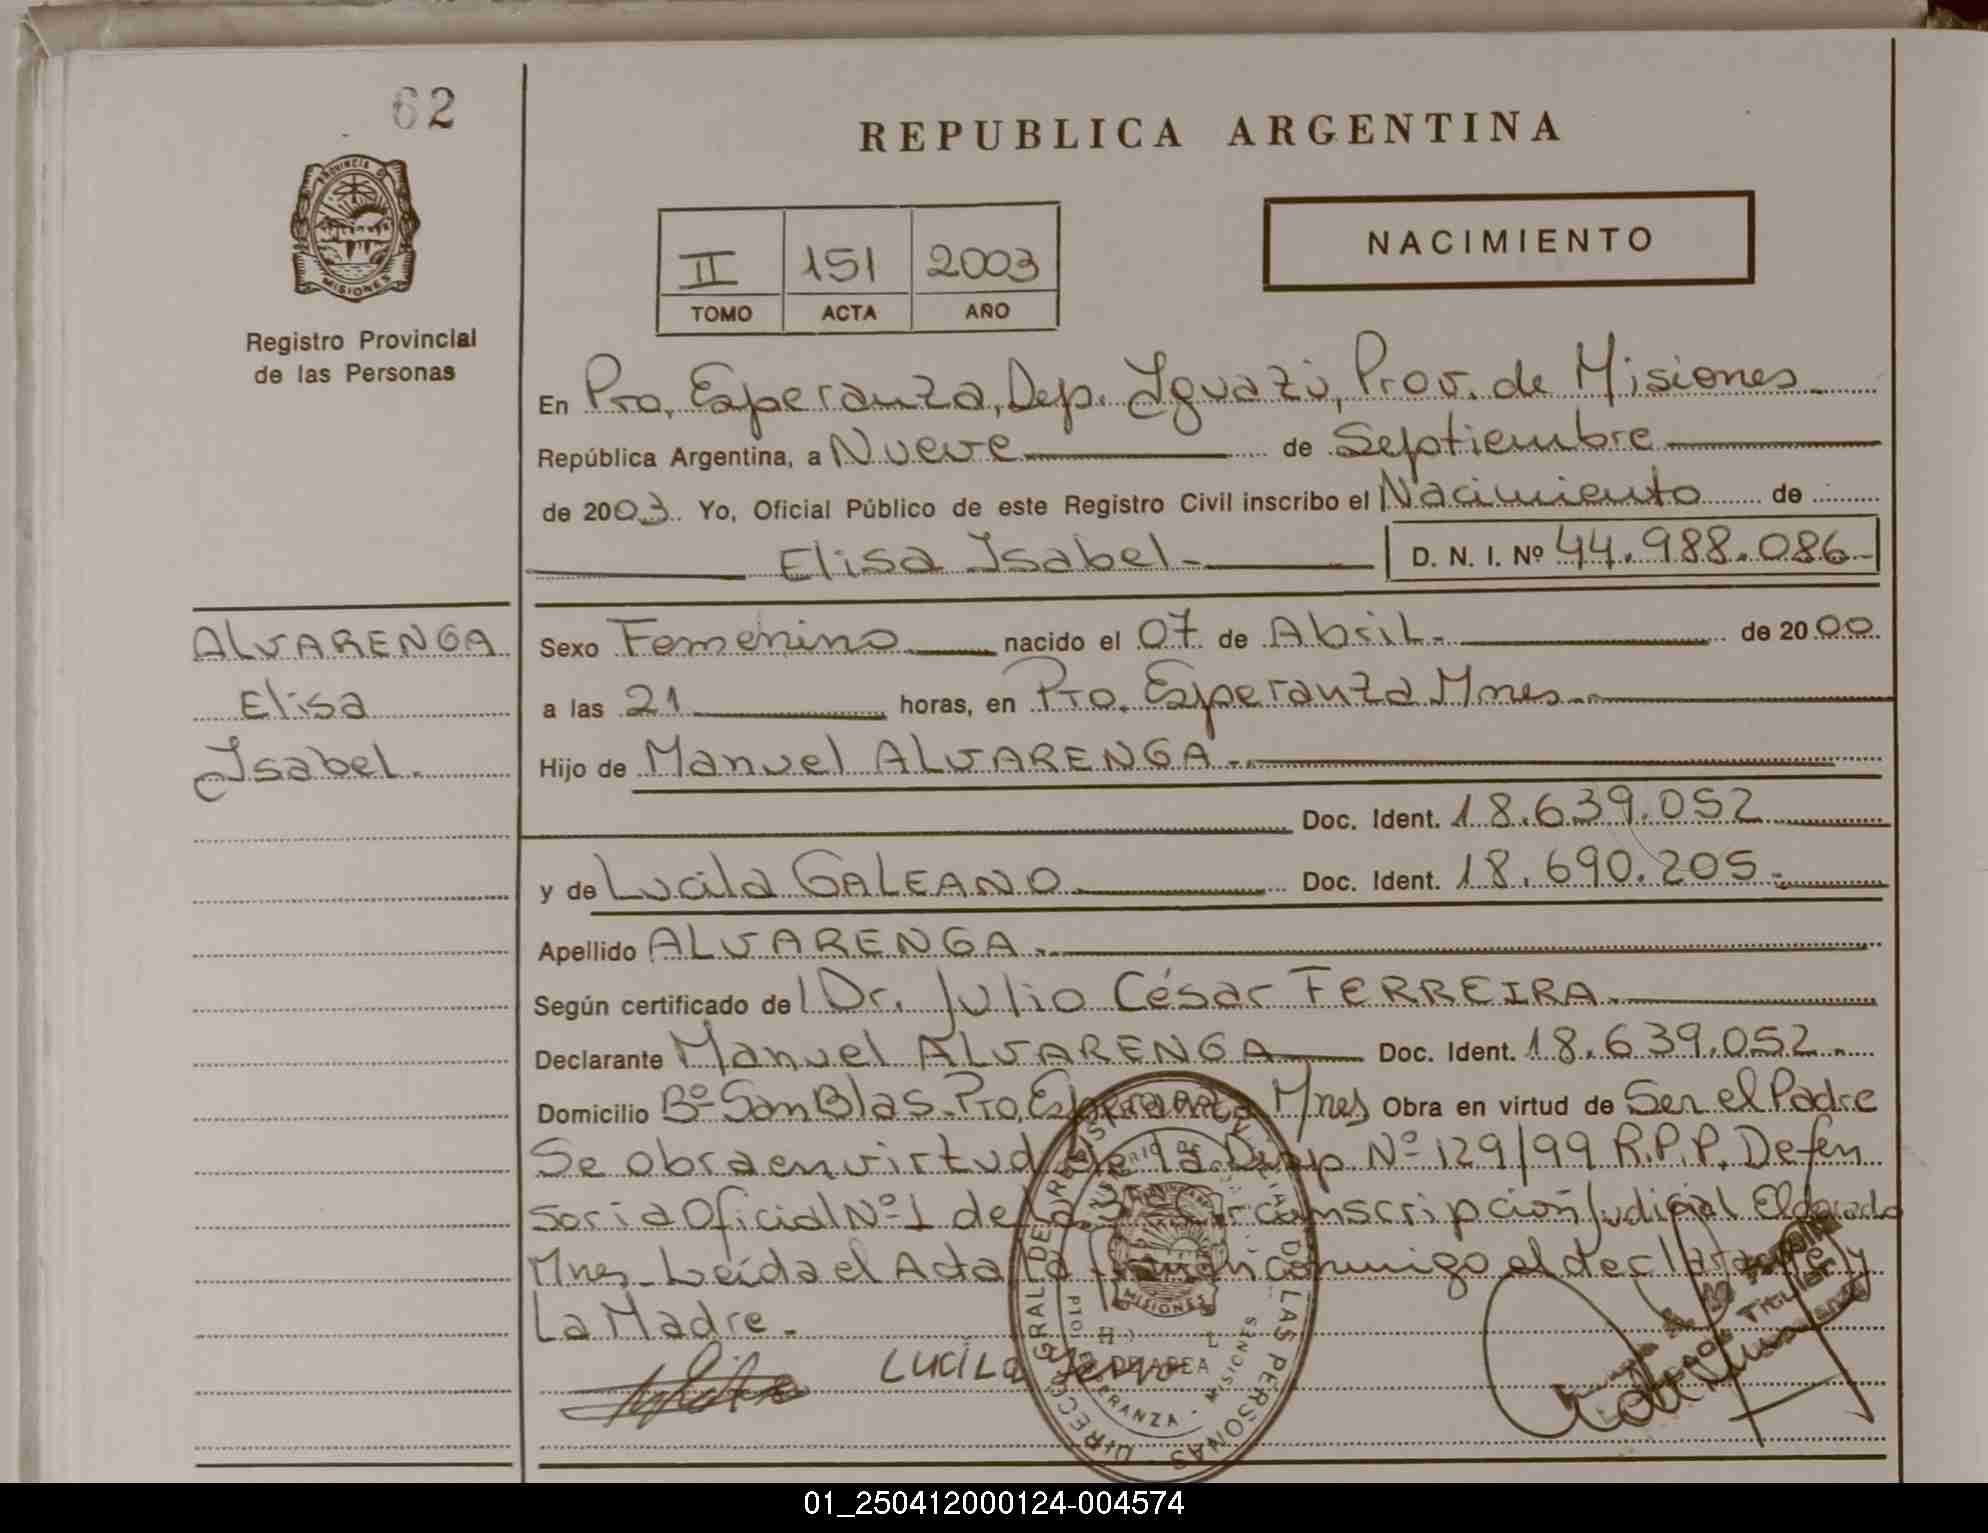 62
REPUBLICA ARGENTINA
PROVINCIA D
MISIONES
Registro Provincial
de las Personas
II 151 2003
TOMO ACTA AÑO
NACIMIENTO
En Pto. Esperanza, Dep. Iguazú, Prov. de Misiones
República Argentina, a Nueve de Septiembre
de 2003. Yo, Oficial Público de este Registro Civil inscribo el Nacimiento de
Elisa Isabel.- D. N. I. Nº 44.988.086
ALVARENGA
Elisa
Isabel.
Sexo Femenino nacido el 07 de Abril.- de 2000
a las 21 horas, en Pto. Esperanza Mnes.-
Hijo de Manuel ALVARENGA.-
Doc. Ident. 18.639.052
y de Lucila GALEANO Doc. Ident. 18.690.205.-
Apellido ALVARENGA.-
Según certificado del Dr. Julio César FERREIRA.
Declarante Manuel ALVARENGA Doc. Ident. 18.639.052.-
Domicilio Bº San Blas-Pto. Esperanza Mnes Obra en virtud de Ser el Padre
Se obra en virtud de la Disp. Nº 129/99 R.P.P. Defen
soria Oficial Nº 1 de la 3ra Circunscripción Judicial Eldorado
Mnes- Leída el Acta la firman conmigo el declarante y
La Madre.-
Lucila
MISIONES
01_250412000124-004574